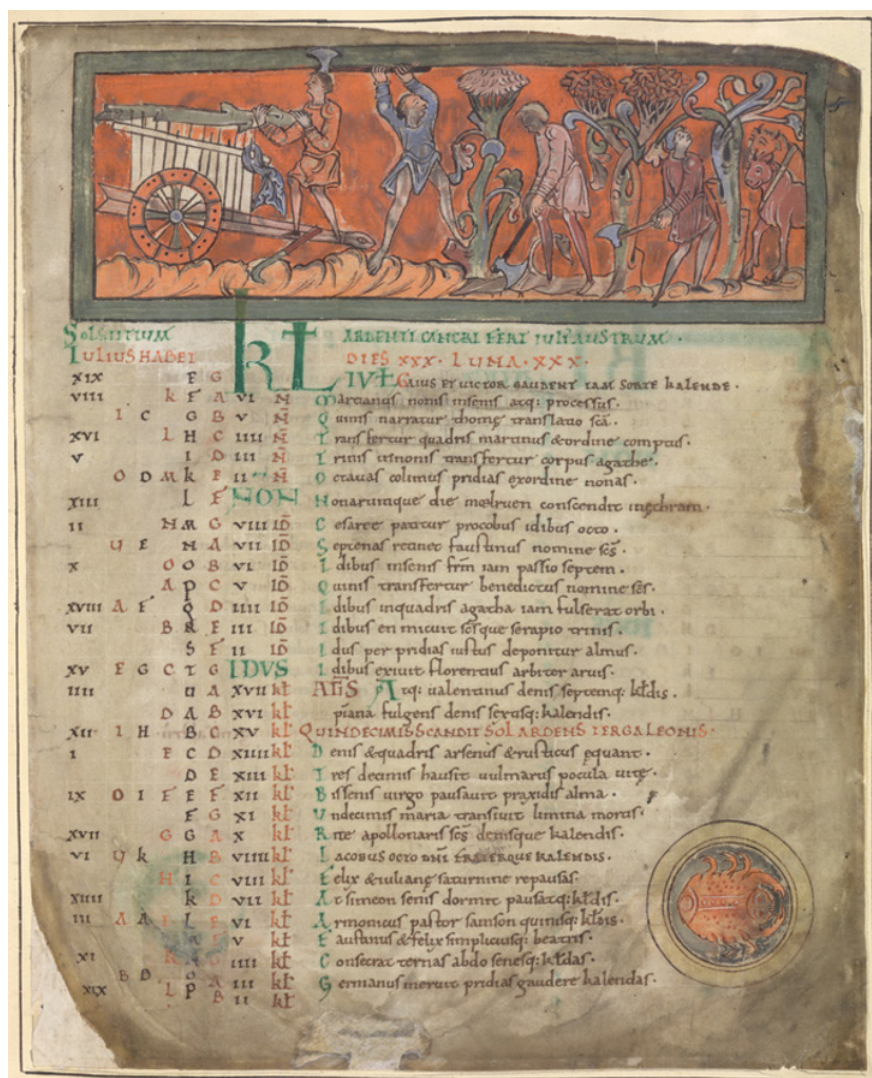 SOLSTITIUM KL ARDENTI CANCRI FERT IULIUS AUSTRUM.
IULIUS HABET DIES XXX. LUNA. XXX.
XIX F G IUL GAIUS ET VICTOR GAUDENT IAM SORTE KALENDE.
VIII K F A VI N Martianus nonis insenis atq: processus.
I C G B V N Quinis narratur thome translatio sca.
XVI L H C IIII N Transfertur quadris martinus & ordine comptus.
V I D III N Trinis uisnonis transfertur corpus agathe.
O D M K E II N Octauas colimus pridias exordine nonas.
XIII L F NON Nonarumque die mælruen conscendit
II N M G VIII ID Cesaree patitur procobus idibus octo.
U E N A VII ID Septenas retinet faustinus nomine scs.
X O O B VI ID Idibus insenis frm iam passio septem.
A P C V ID Quinis transfertur benedictus nomine scs.
XVIII A F Q D IIII ID Idibus inquadris agatha iam fulserat orbi.
VII B R E III ID Idibus en micuit scsque serapio trinis.
S F II ID Idus per pridias iustus deponitur almus.
XV F G C T G IDUS Idibus exiuit florentius arbiter aruis.
IIII U A XVII kl ATIS Atq: ualentinus denis septemq: kldis.
D A B XVI kl piana fulgens denis sexusq: kalendis.
XII I H B C XV kl QUINDECIMIS SCANDIT SOL ARDENS TERGA LEONIS.
I E C D XIIII kl Denis & quadris arsenius & rusticus equant.
D E XIII kl Tres decimis hausit uulmarus pocula uite.
IX O I F E F XII kl Bissenis uirgo pausauit praxidis alma.
F G XI kl Undecimis maria transiuit limina mortis.
XVII G G A X kl Rite apollonaris scs denisque kalendis.
VI U K H B VIIII kl IACOBUS OCTO DNI FRATERQUE KALENDIS.
H I C VIII kl Felix & iuliane saturnine repausas.
XIIII K D VII kl At simeon senis dormit pausatq: kldis.
III A A L E VI kl Armonicus pastor samson quinisq: kldis.
F V kl Faustanus & felix simplicusq: beatris.
XI G IIII kl Consecrat ternas abdo senesq: kldas.
B B O A III kl Germanus meruit pridias gaudere kalendas.
XIX L P B II kl